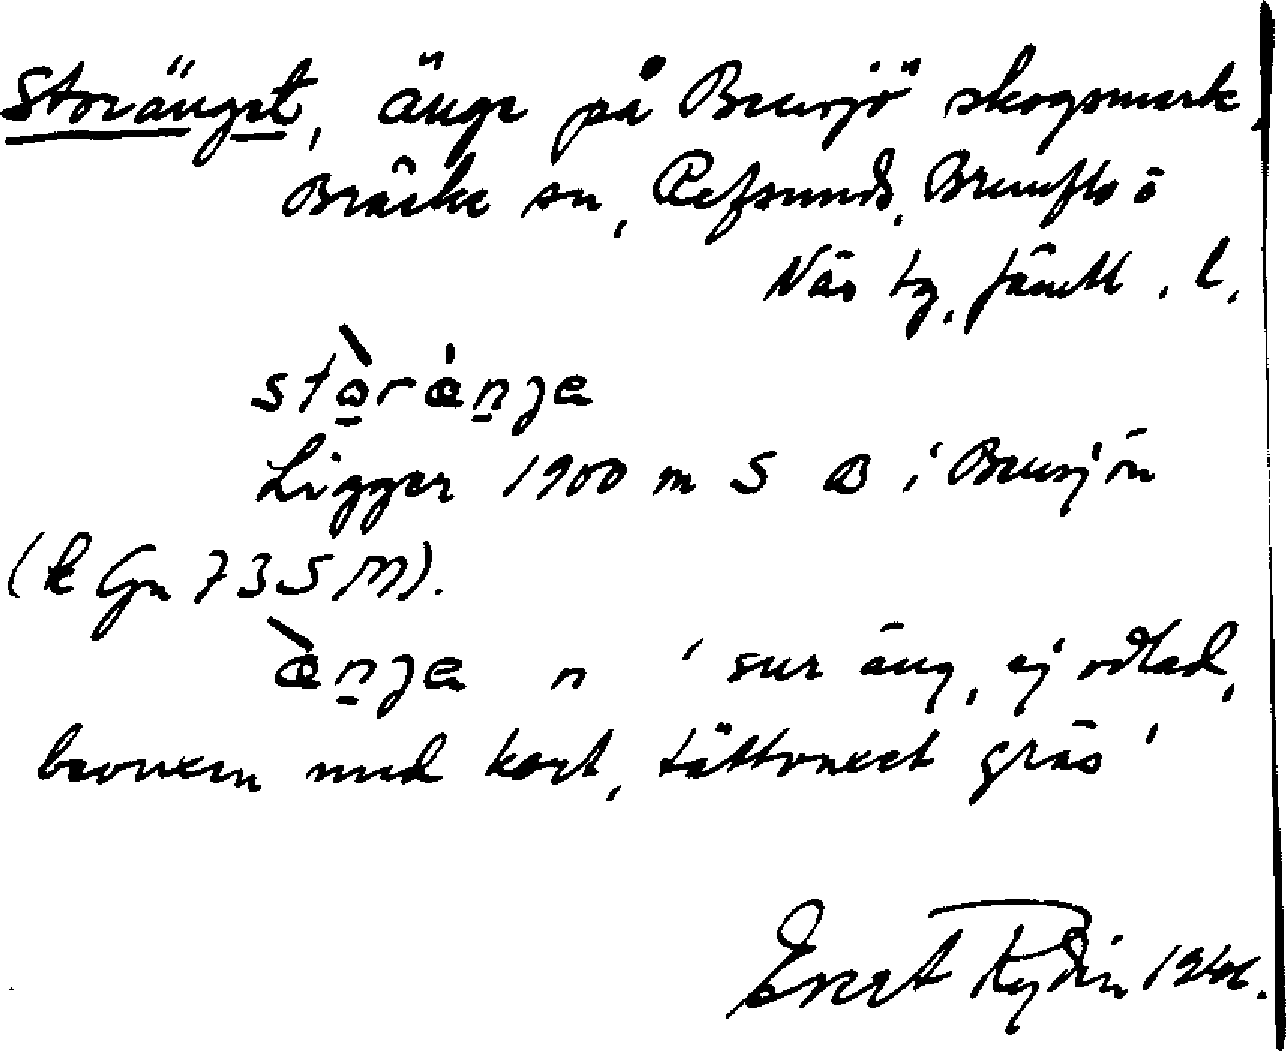 Storänget, änge på Bensjö skogsmark,
Bräcke sn, Refsunds, Brunflo o
Näs tg, Jämtl. l.
stòrǽnje
Ligger 1900 m S B i Bensjön
(k Gn 735 M).
æ̀nje n 'sur äng, ej odlad,
bevuxen med kort, tättvuxet gräs'
Evert Rydin 1946.